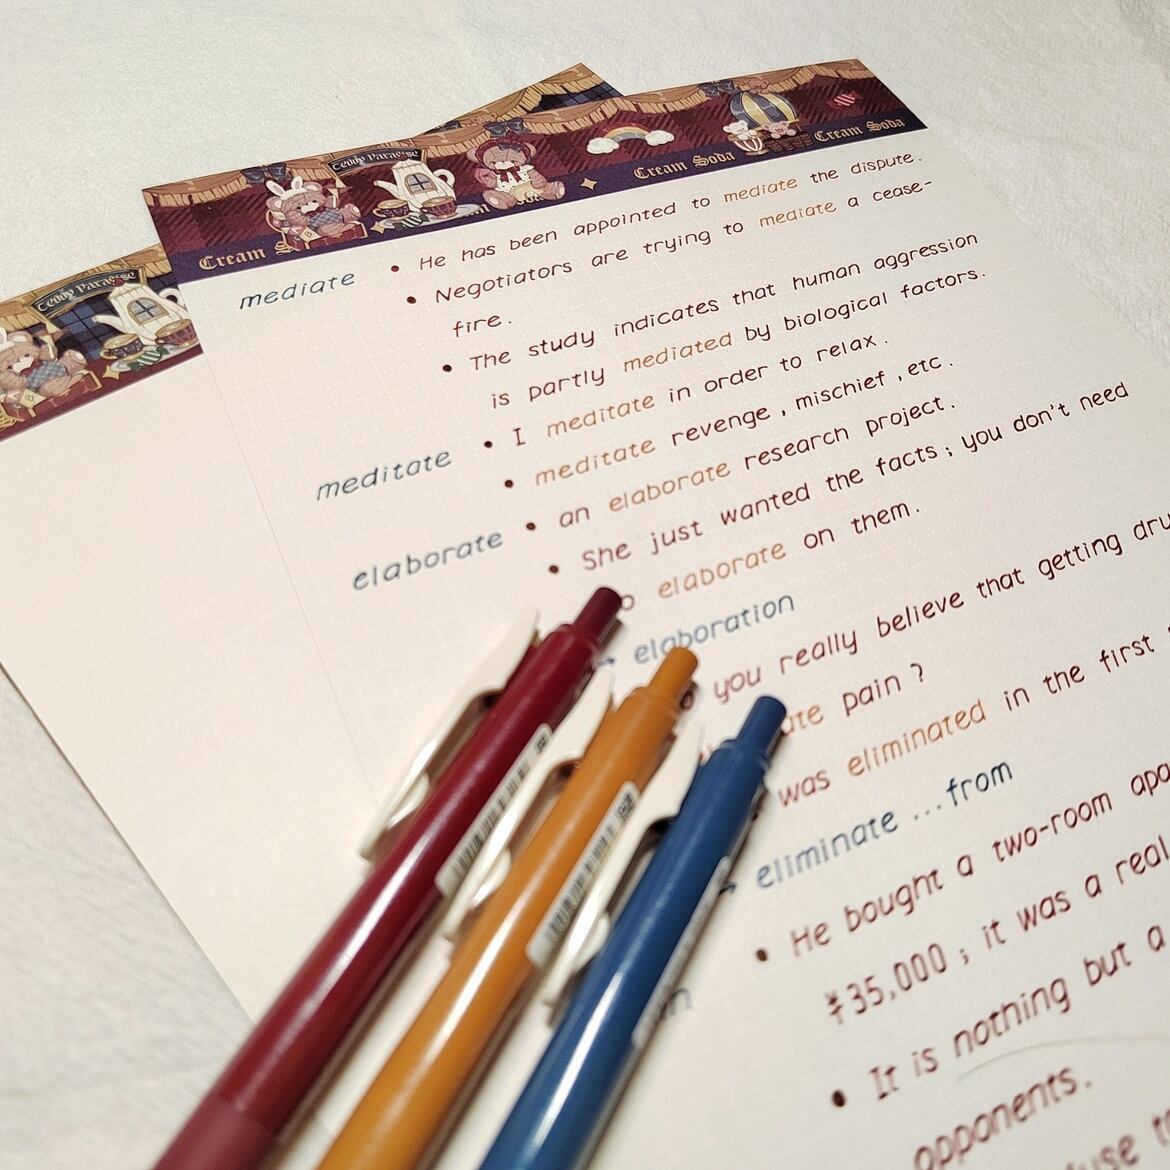 Teddy Paradise
Cream Soda
Cream Soda
Cream
Teddy Paradise
mediate
• He has been appointed to mediate the dispute.
• Negotiators are trying to mediate a cease-
fire.
• The study indicates that human aggression
is partly mediated by biological factors.
meditate
• I meditate in order to relax.
• meditate revenge, mischief, etc.
elaborate
• an elaborate research project.
• She just wanted the facts; you don't need
elaborate on them.
→ elaboration
you really believe that getting
pain?
was eliminated in the first
→ eliminate ...from
• He bought a two-room
¥35,000; it was a real
• It is nothing but a
opponents.